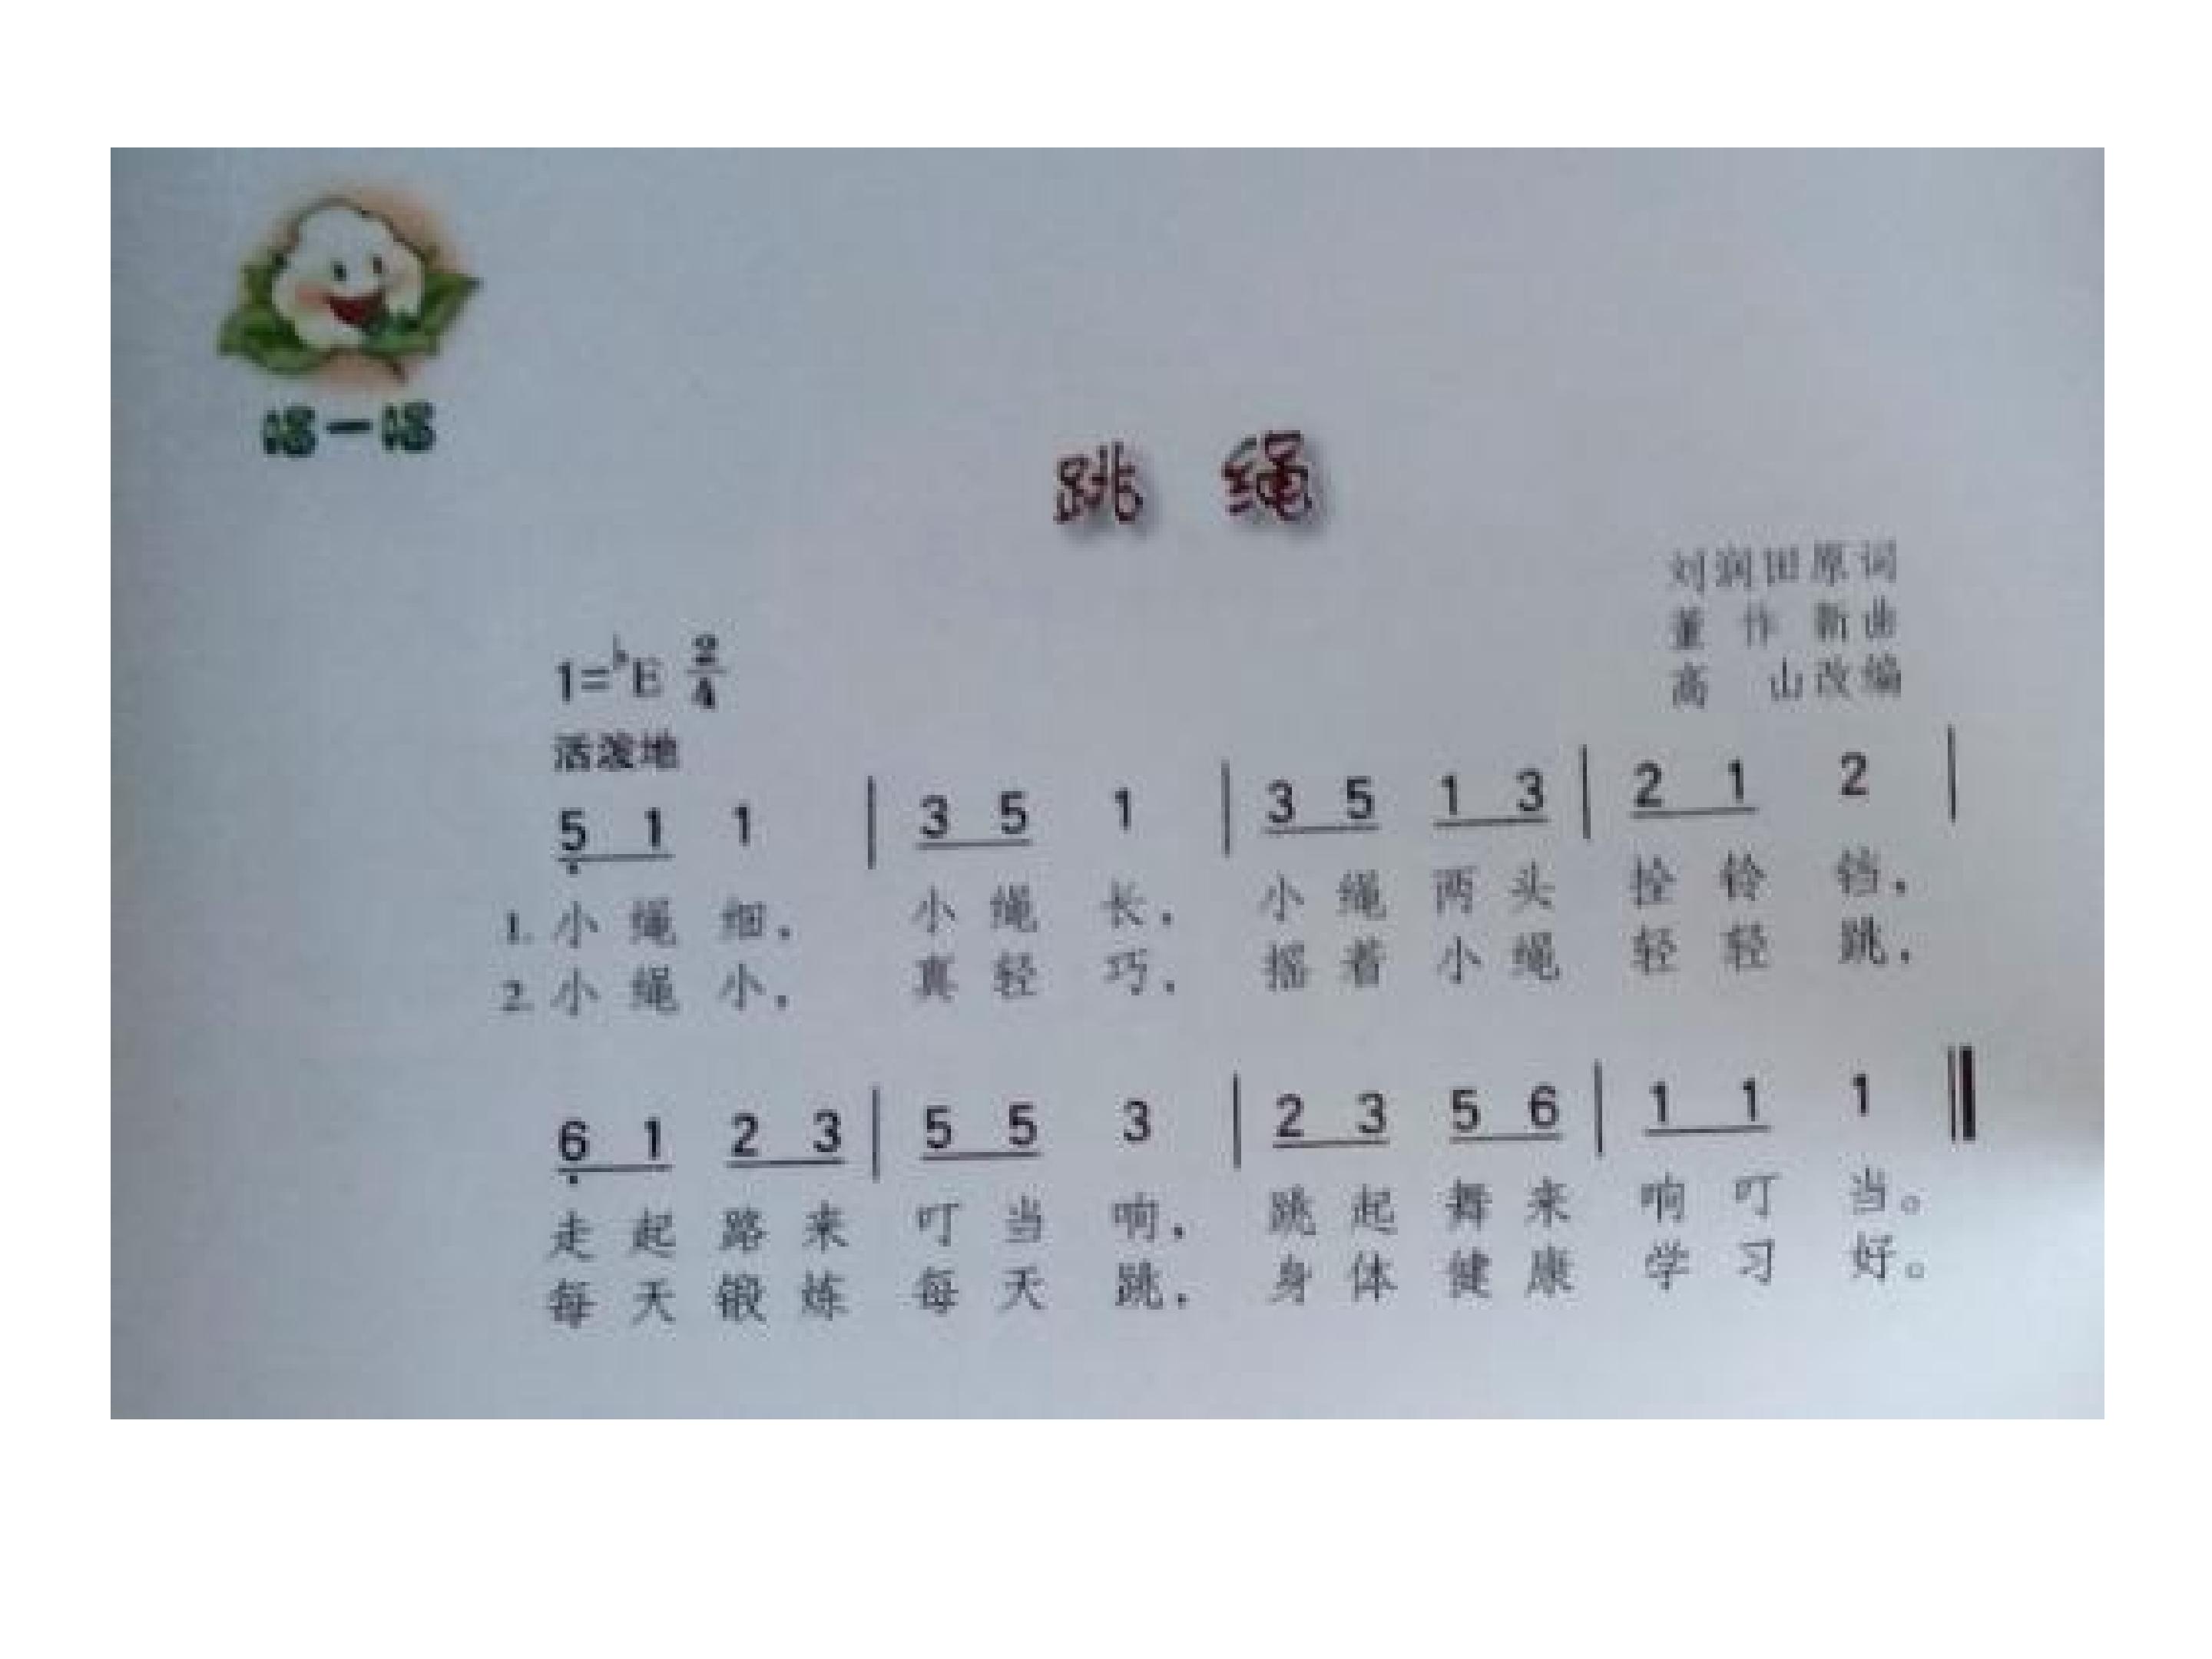 唱一唱
跳 绳
刘润田原词
董 作 新曲
高 山改编
1=♭E 2/4
活泼地
5̣ 1 1 | 3 5 1 | 3 5 1 3 | 2 1 2 |
1. 小绳细，小绳长，小绳两头拴铃铛，
2. 小绳小，真轻巧，摇着小绳轻轻跳，
6̣ 1 2 3 | 5 5 3 | 2 3 5 6 | 1 1 1 ‖
走起路来叮当响，跳起舞来响叮当。
每天锻炼每天跳，身体健康学习好。